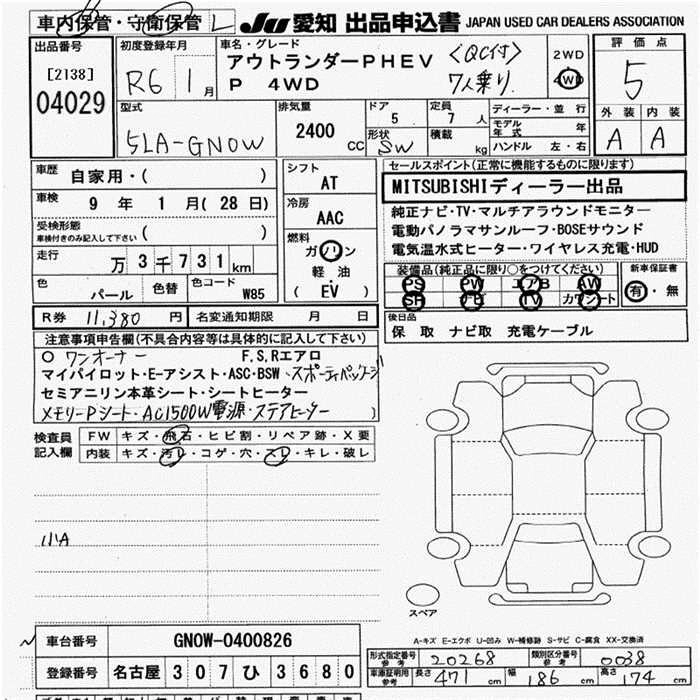 車内保管・守衛保管 L JU 愛知 出品申込書 JAPAN USED CAR DEALERS ASSOCIATION
出品番号 [2138] 04029
初度登録年月 R6 1月
車名・グレード アウトランダーPHEV <QC付>
P 4WD 7人乗り
2WD 4WD
評価点 5
外装 内装
A A
型式 5LA-GN0W
排気量 2400 CC
ドア 5 定員 7人
形状 SW 積載 kg
ディーラー・並行
モデル年式 年
ハンドル 左・右
車歴 自家用・( )
車検 9年 1月(28日)
受検形態 車検付きのみ記入して下さい ( )
走行 万3千731km
色 パール 色替 色コード W85
シフト AT
冷房 AAC
燃料 ガソリン
軽油
(EV)
セールスポイント(正常に機能するものに限ります)
MITSUBISHIディーラー出品
純正ナビ・TV・マルチアラウンドモニター
電動パノラマサンルーフ・BOSEサウンド
電気温水式ヒーター・ワイヤレス充電・HUD
装備品(純正品に限り○をつけてください)
PS PW エアB AW
SR ナビ TV カワシート
新車保証書
有・無
R券 11,380円 名変通知期限 月 日
後日品
保 取 ナビ取 充電ケーブル
注意事項申告欄(不具合内容等は具体的に記入して下さい)
○ ワンオーナー F,S,Rエアロ
マイパイロット・E-アシスト・ASC・BSW・スポーティパッケージ
セミアニリン本革シート・シートヒーター
メモリーPシート・AC1500W電源・ステアヒーター )
検査員記入欄 FW キズ・飛石・ヒビ割・リペア跡・X要
内装 キズ・汚レ・コゲ・穴・スレ・キレ・破レ
小A
スペア
車台番号 GN0W-0400826
登録番号 名古屋 307 ひ 3680
A-キズ E-エクボ U-凹み W-補修跡 S-サビ C-腐食 XX-交換済
形式指定番号 参考 20268 類別区分番号 参考 0038
車庫証明用 参考 長さ 471cm 幅 186cm 高さ 174cm